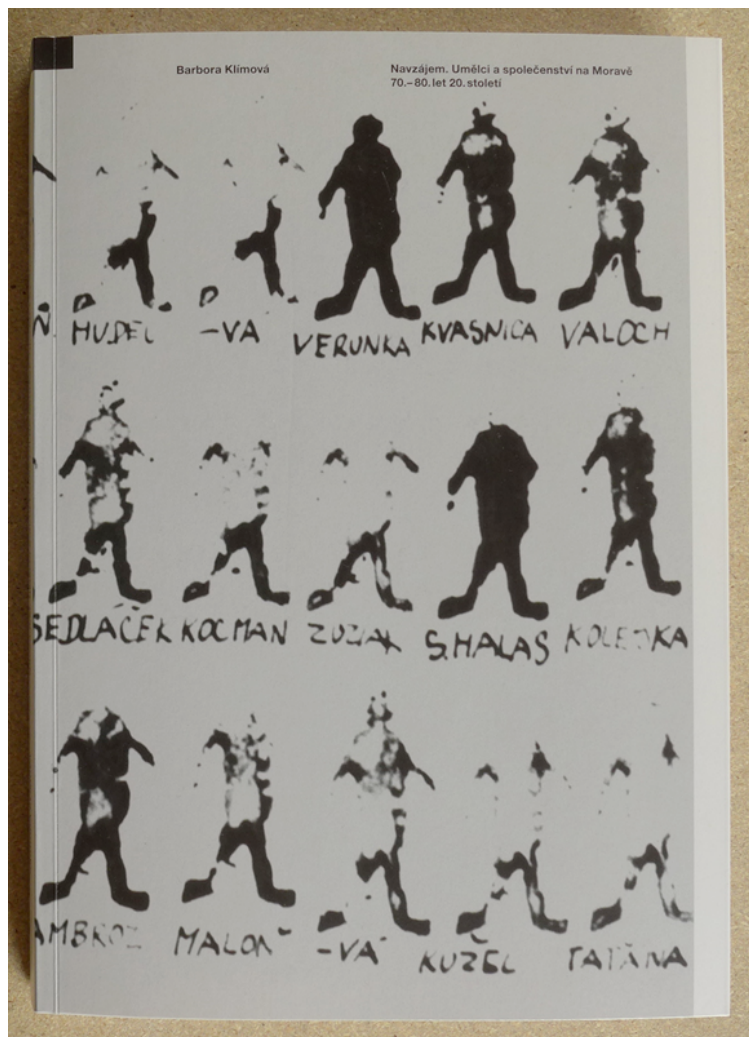 Barbora Klímová
Navzájem. Umělci a společenství na Moravě
70.–80. let 20. století
HUDEC -VÁ VERUNKA KVASNICA VALOCH
SEDLÁČEK KOCMAN ZUZIAK S.HALAS
AMBROZ -VÁ KUŽEL TAŤÁNA